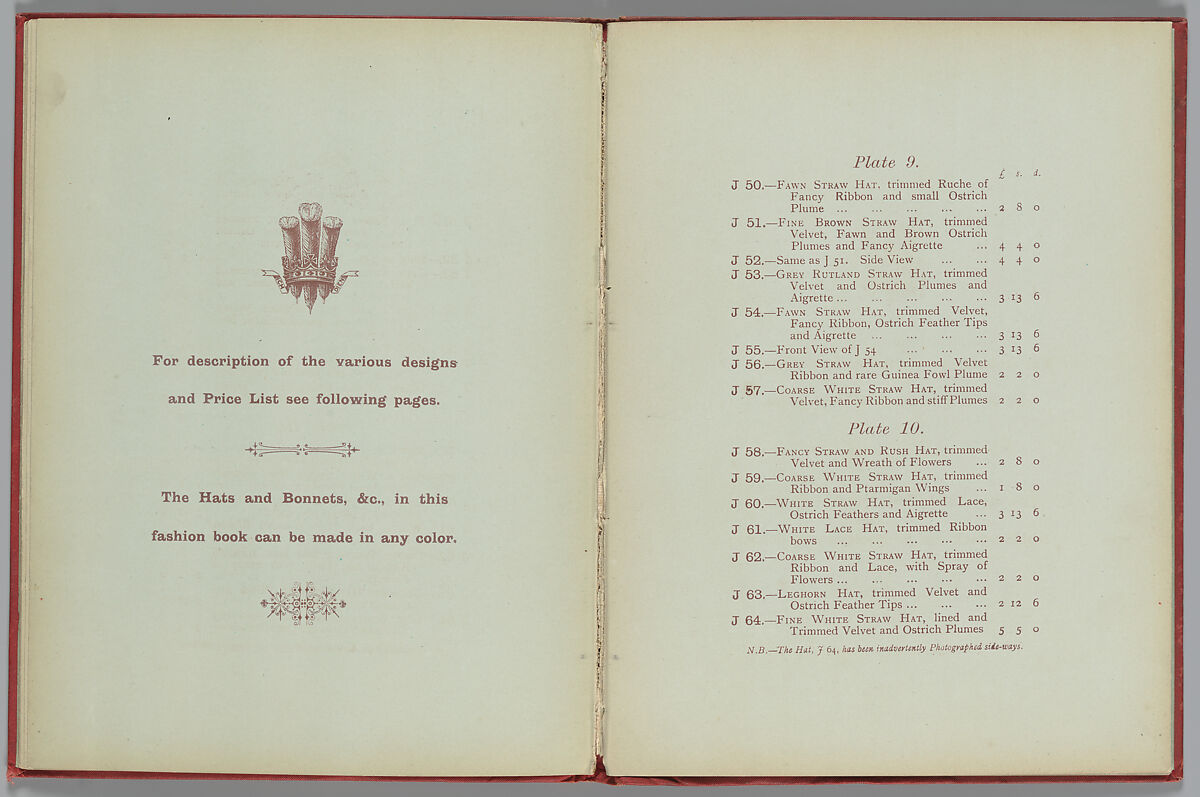 ICH DIEN
For description of the various designs
and Price List see following pages.
The Hats and Bonnets, &c., in this
fashion book can be made in any color.
Plate 9.
£ s. d.
J 50.—Fawn Straw Hat, trimmed Ruche of
Fancy Ribbon and small Ostrich
Plume ... ... ... ... ... 2 8 0
J 51.—Fine Brown Straw Hat, trimmed
Velvet, Fawn and Brown Ostrich
Plumes and Fancy Aigrette ... 4 4 0
J 52.—Same as J 51. Side View ... ... 4 4 0
J 53.—Grey Rutland Straw Hat, trimmed
Velvet and Ostrich Plumes and
Aigrette ... ... ... ... ... 3 13 6
J 54.—Fawn Straw Hat, trimmed Velvet,
Fancy Ribbon, Ostrich Feather Tips
and Aigrette ... ... ... ... 3 13 6
J 55.—Front View of J 54 ... ... ... 3 13 6
J 56.—Grey Straw Hat, trimmed Velvet
Ribbon and rare Guinea Fowl Plume 2 2 0
J 57.—Coarse White Straw Hat, trimmed
Velvet, Fancy Ribbon and stiff Plumes 2 2 0
Plate 10.
J 58.—Fancy Straw and Rush Hat, trimmed
Velvet and Wreath of Flowers ... 2 8 0
J 59.—Coarse White Straw Hat, trimmed
Ribbon and Ptarmigan Wings ... 1 8 0
J 60.—White Straw Hat, trimmed Lace,
Ostrich Feathers and Aigrette ... 3 13 6
J 61.—White Lace Hat, trimmed Ribbon
bows ... ... ... ... ... 2 2 0
J 62.—Coarse White Straw Hat, trimmed
Ribbon and Lace, with Spray of
Flowers ... ... ... ... ... 2 2 0
J 63.—Leghorn Hat, trimmed Velvet and
Ostrich Feather Tips ... ... ... 2 12 6
J 64.—Fine White Straw Hat, lined and
Trimmed Velvet and Ostrich Plumes 5 5 0
N.B.—The Hat, J 64, has been inadvertently Photographed side-ways.